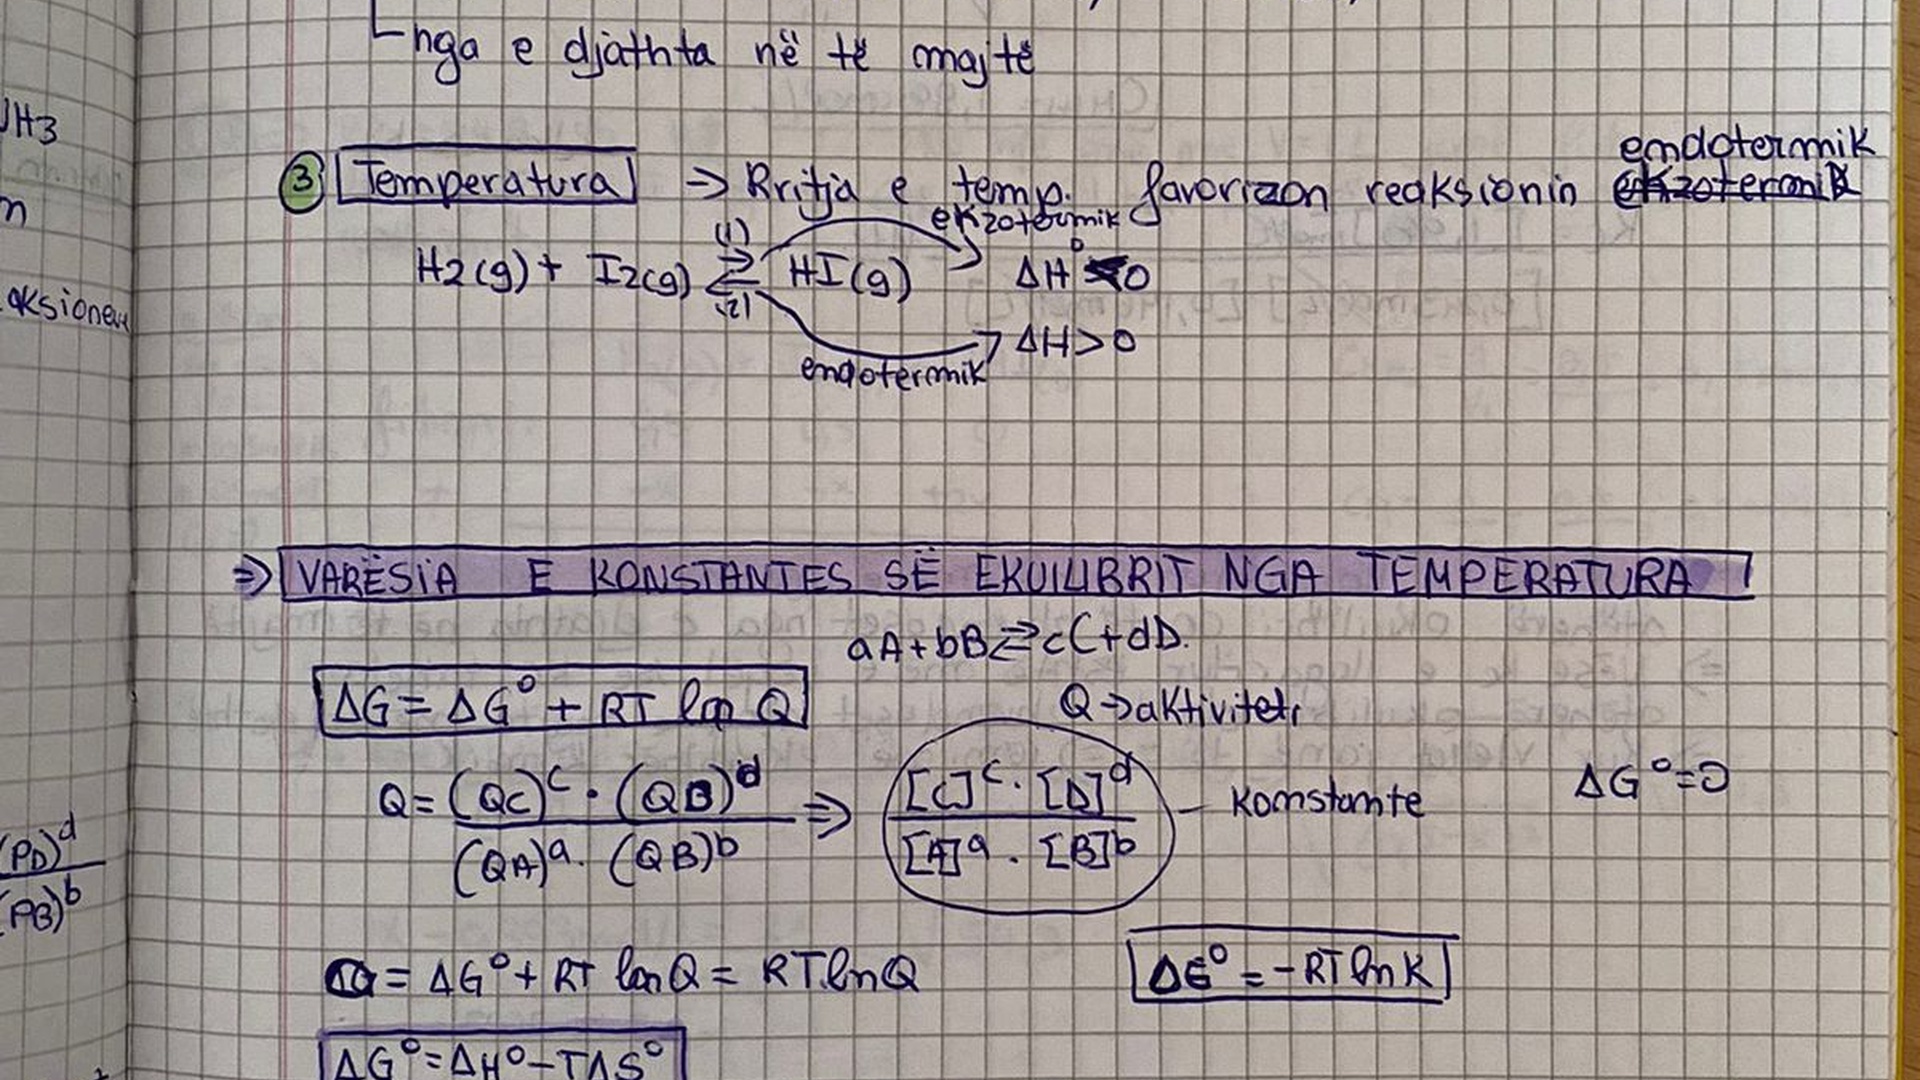 nga e djathta në të majtë
JH3
n
aksioneve
(PD)^d
(PB)^b
③ Temperatura → Rritja e temp. favorizon reaksionin endotermik
ekzotermik
H2(g) + I2(g) (1) ⇌ (2) HI(g) ΔH°<0
ΔH>0
endotermik
⇒ VARËSIA E KONSTANTES SË EKUILIBRIT NGA TEMPERATURA
aA+bB⇌cC+dD.
ΔG = ΔG° + RT ln Q
Q→aktiviteti
Q = (QC)^c · (QD)^d / (QA)^a · (QB)^b ⇒ [C]^c · [D]^d / [A]^a · [B]^b – Konstante
ΔG°=0
= ΔG° + RT lnQ = RT.lnQ
ΔG° = -RT ln K
ΔG°=ΔH°-TΔS°